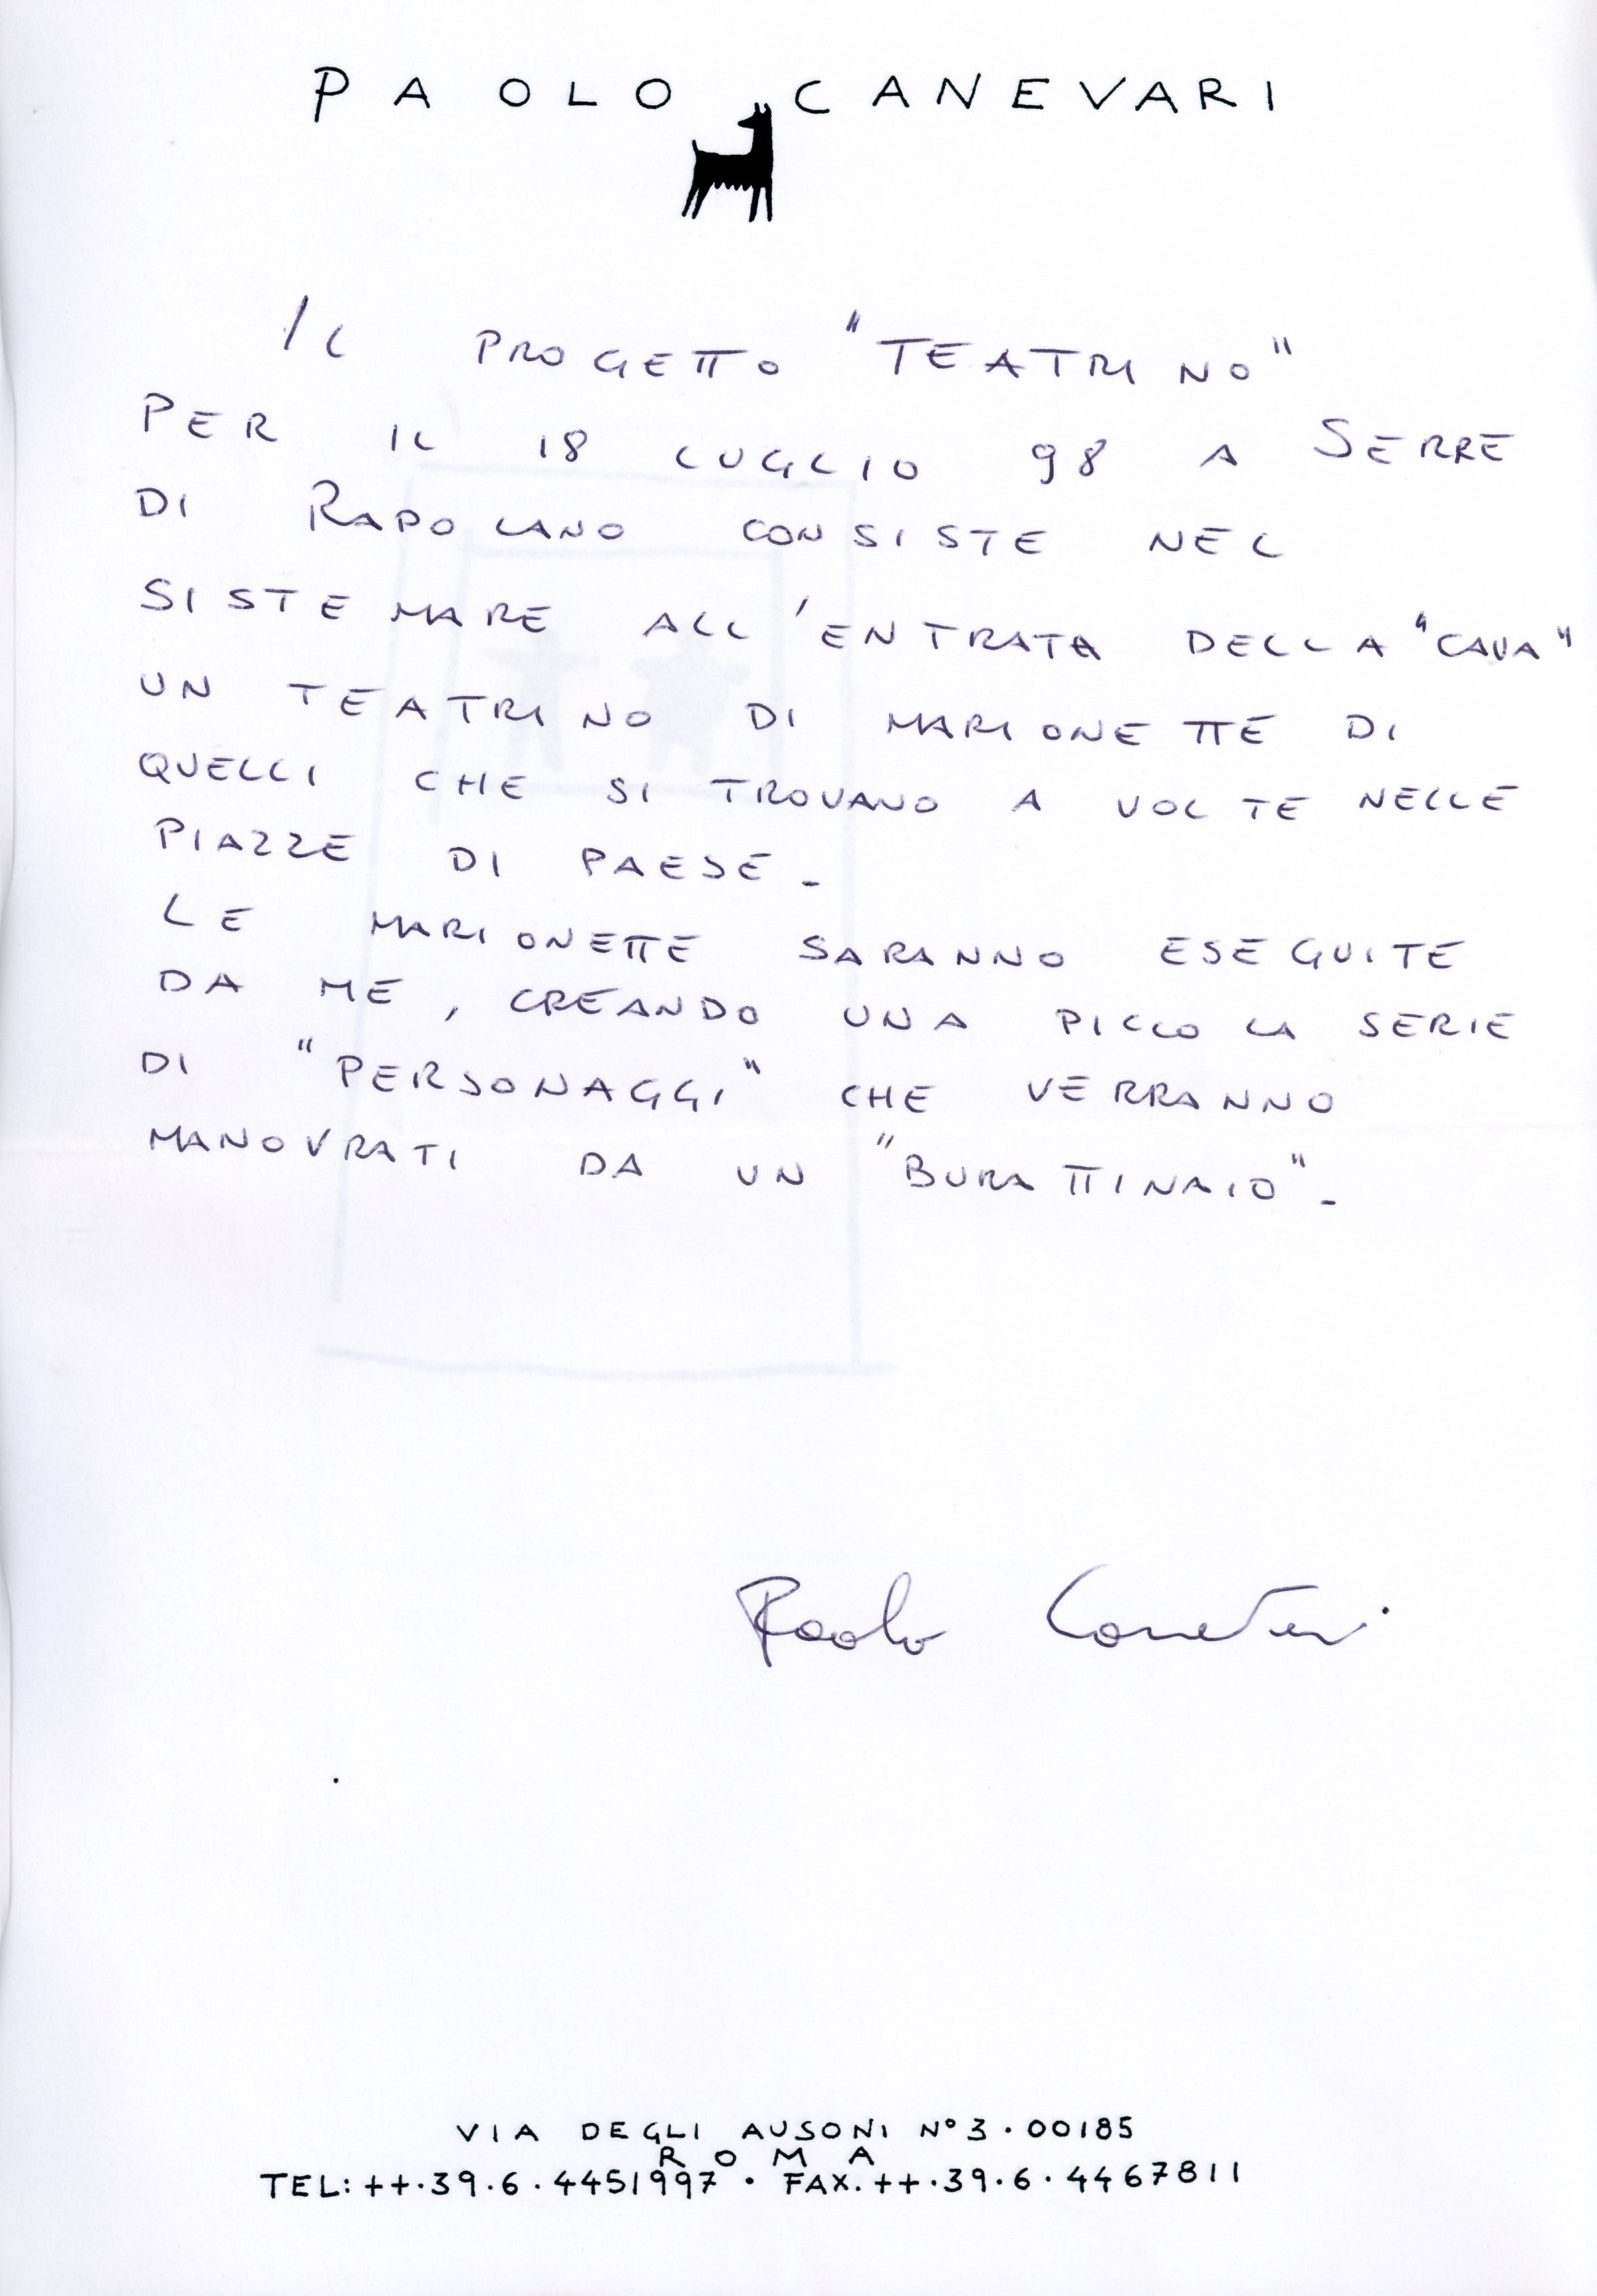 PAOLO CANEVARI
IL PROGETTO "TEATRINO"
PER IL 18 LUGLIO 98 A SERRE
DI RAPOLANO CONSISTE NEL
SISTEMARE ALL'ENTRATA DELLA "CAVA"
UN TEATRINO DI MARIONETTE DI
QUELLI CHE SI TROVANO A VOLTE NELLE
PIAZZE DI PAESE -
LE MARIONETTE SARANNO ESEGUITE
DA ME, CREANDO UNA PICCOLA SERIE
DI "PERSONAGGI" CHE VERRANNO
MANOVRATI DA UN "BURATTINAIO" -
Paolo Canevari
VIA DEGLI AUSONI N° 3 · 00185
ROMA
TEL: ++·39·6·4451997 · FAX. ++·39·6·4467811